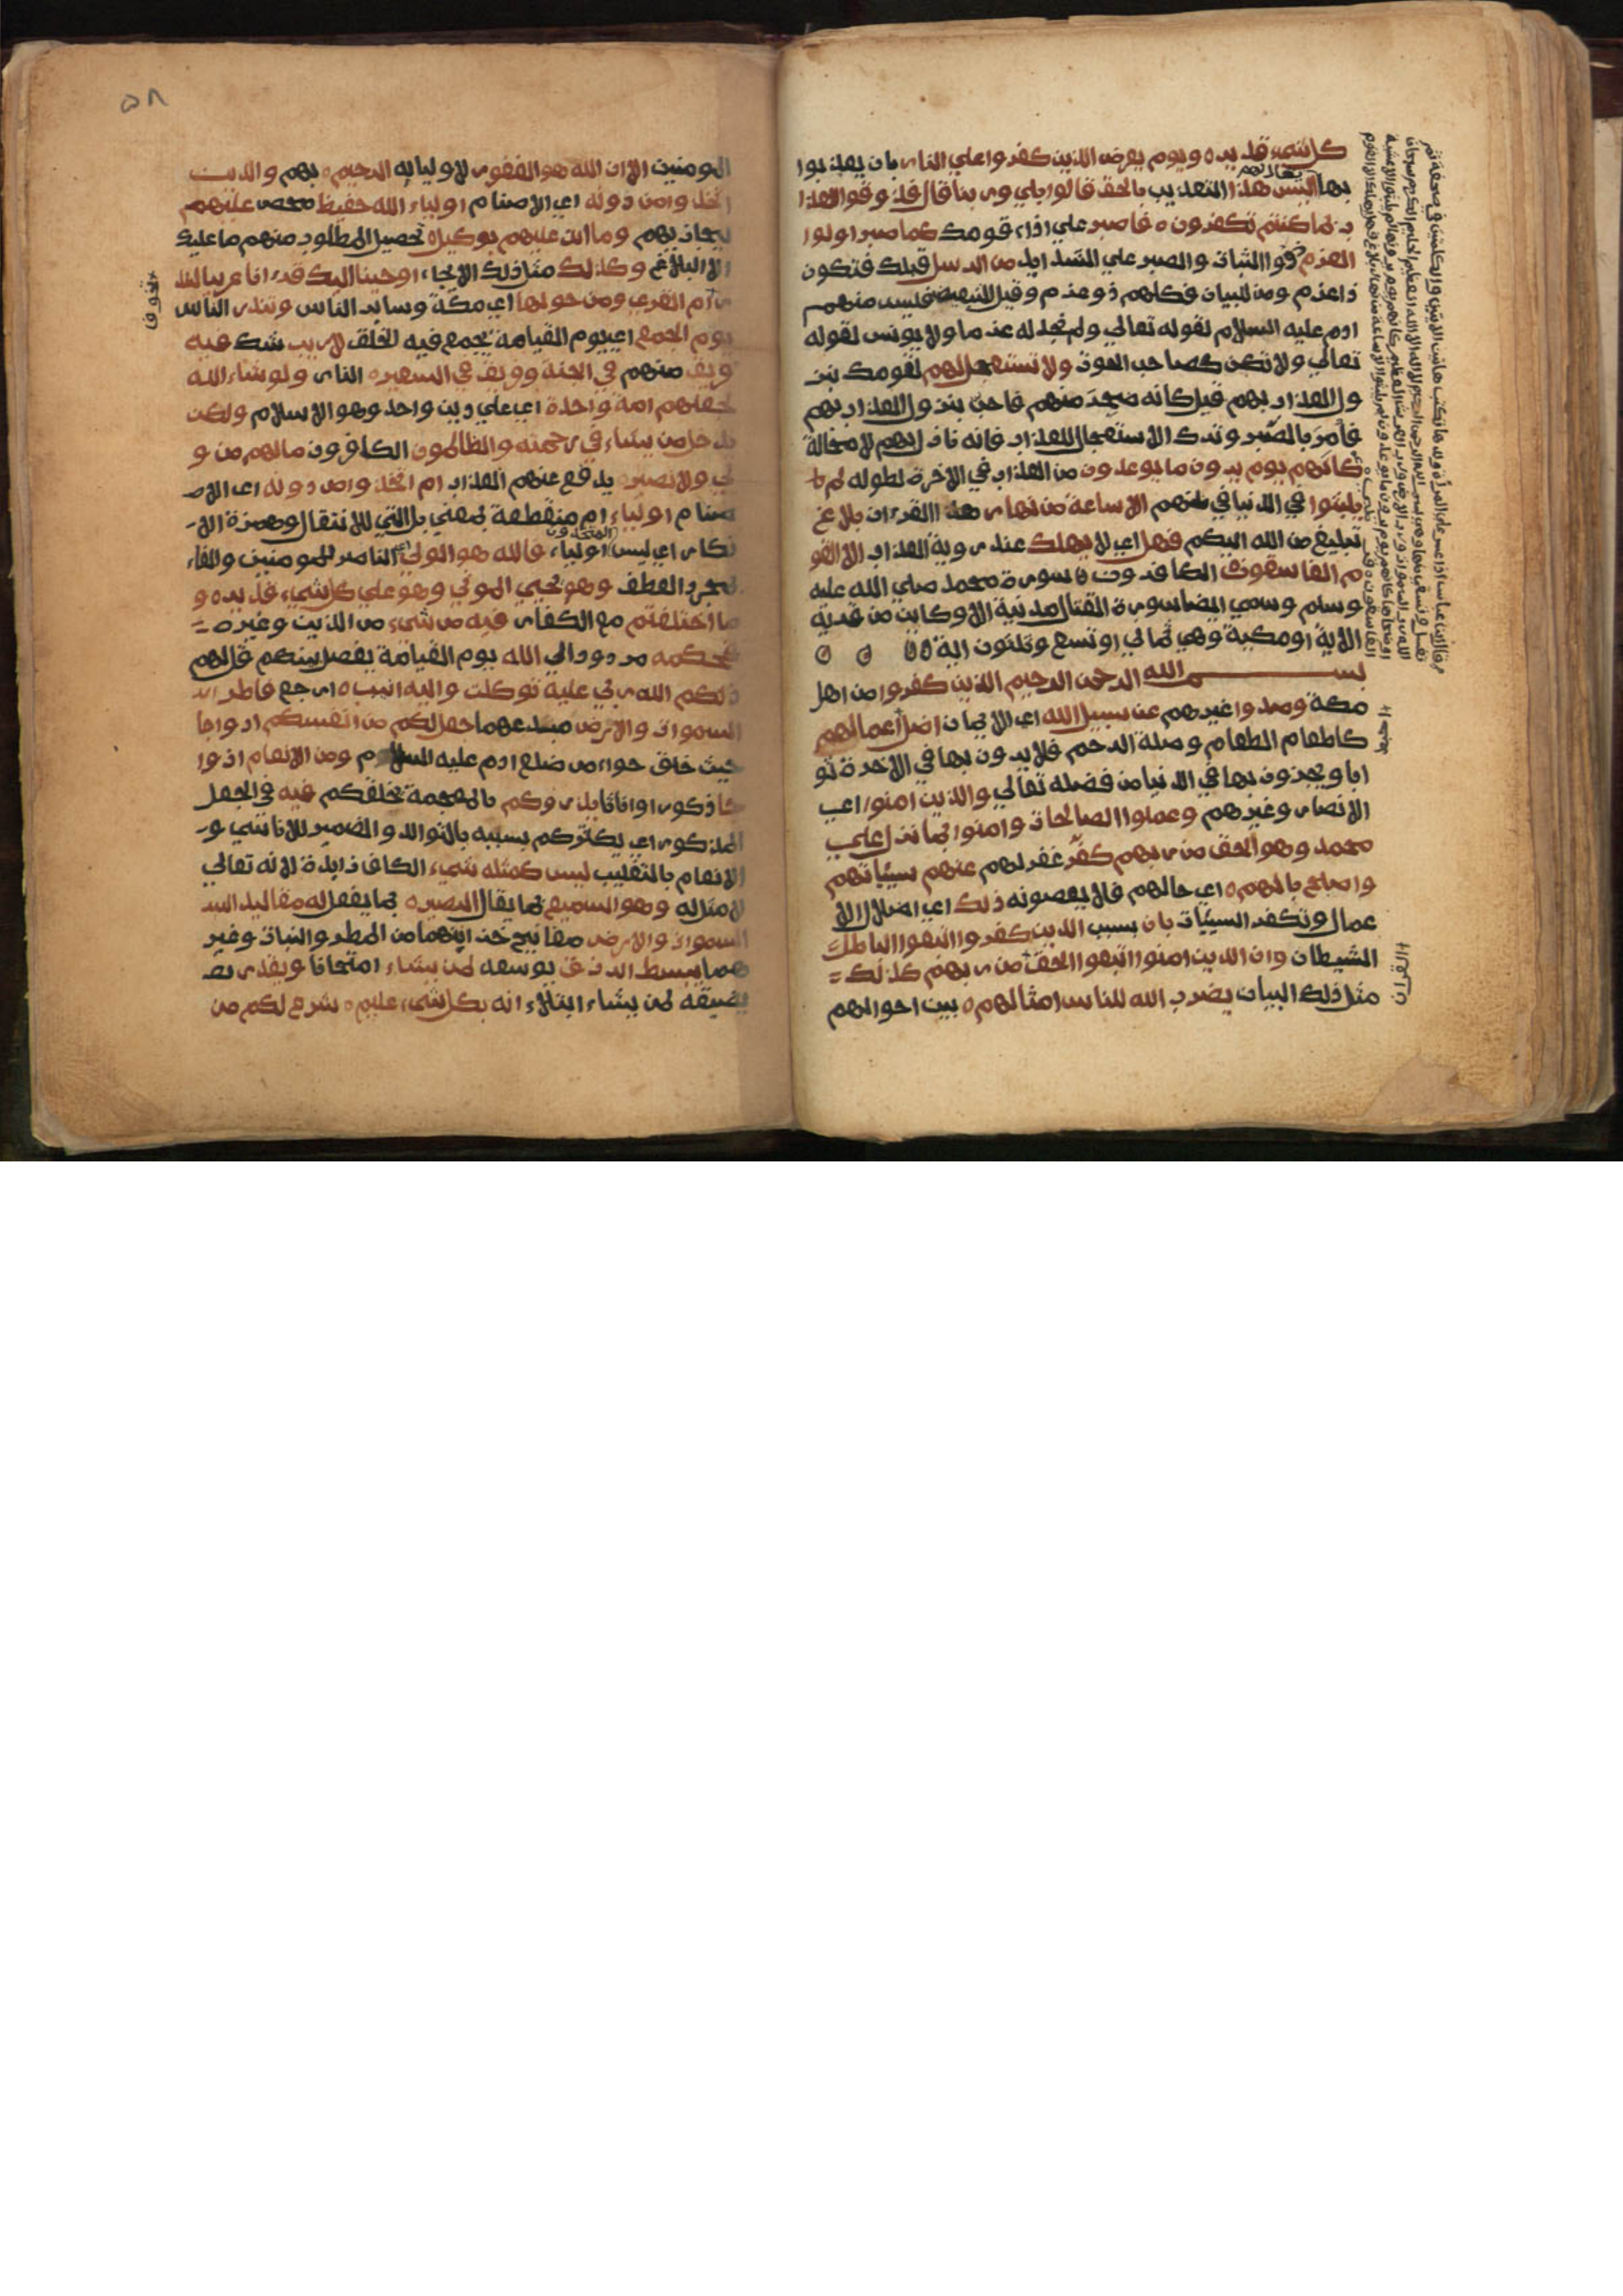 كل شيء قدير ه ويوم يعرض الذين كفروا علي النار بان يعذبوا
بها يقال لهم اليس هذا التعذيب بالحق قالوا بلي وربنا قال فذوقوا العذا
ب بما كنتم تكفرون ه فاصبر علي اذاء قومك كما صبر اولوا
العزم ذووا الثبات والصبر علي الشدايد من الرسل قبلك فتكون
ذاعزم ومن للبيان فكلهم ذوعزم وقيل للتبعيض فليس منهم
ادم عليه السلام لقوله تعالي ولم نجد له عزما ولا يونس لقوله
تعالي ولا تكن كصاحب الحوت ولا تستعجل لهم لقومك نز
ول العذاب بهم قيل كانه ضجر منهم فاحب نزول العذاب بهم
فأمر بالصبر وترك الاستعجال للعذاب فانه نازل بهم لا محالة
كانهم يوم يرون ما يوعدون من العذاب في الاخرة لطوله لم
يلبثوا في الدنيا في ظنهم الا ساعة من نهار هذا القرءان بلاغ
تبليغ من الله اليكم فهل اي لا يهلك عند روية العذاب الا القو
م الفاسقون الكافرون سورة محمد صلي الله عليه
وسلم وسمي ايضا سورة القتال مدنية الا وكاين من قرية
الاية او مكية وهي ثماني او تسع وثلثون اية
بسم الله الرحمن الرحيم الذين كفروا من اهل
مكة وصدوا غيرهم عن سبيل الله اي الايمان اضل اعمالهم
كاطعام الطعام وصلة الرحم فلا يرون بها في الاخرة ثو
ابا ويجزون بها في الدنيا من فضله تعالي والذين امنوا اي
الانصار وغيرهم وعملوا الصالحات وامنوا بما نزل علي
محمد وهو الحق من ربهم كفر غفر لهم عنهم سيئاتهم
واصلح بالهم ه اي حالهم فلا يعصونه ذلك اي اضلال الا
عمال وتكفر السيئات بان بسبب الذين كفروا اتبعوا الباطل
الشيطان وان الذين امنوا اتبعوا الحق من ربهم كذلك
مثل ذلك البيان يضرب الله للناس امثالهم ه بين احوالهم
٥٨
المومنين الا ان الله هو الغفور لاوليايه الرحيم ه بهم والذين
اتخذوا من دونه اي الاصنام اولياء الله حفيظ محص عليهم
ليجازيهم وما انت عليهم بوكيل ه تحصيل المطلوب منهم ما عليك
الا البلاغ وكذلك مثل ذلك الايحاء اوحينا اليك قرءانا عربيا لتنذ
ر ام القري ومن حولها اي مكة وساير الناس وتنذر الناس
يوم الجمع اي يوم القيامة يجمع فيه الخلق لا ريب شك فيه
فريق منهم في الجنة وفريق في السعير ه النار ولو شاء الله
لجعلهم امة واحدة اي علي دين واحد وهو الاسلام ولكن
يدخل من يشاء في رحمته والظالمون الكافرون مالهم من و
لي ولا نصير يدفع عنهم العذاب ام اتخذوا من دونه اي الاص
صنام اولياء ام منقطعة بمعني بل التي للانتقال وهمزة الا
نكار اي ليس المتخذون اولياء فالله هو الولي الناصر للمومنين والفاء
لمجرد العطف وهو يحيي الموتي وهو علي كل شيء قدير ه و
ما اختلفتم مع الكفار فيه من شيء من الدين وغيره
فحكمه مردود الي الله يوم القيامة يفصل بينكم قل لهم
ذلكم الله ربي عليه توكلت واليه انيب ه ارجع فاطر
السموات والارض مبدعهما جعل لكم من انفسكم ازواجا
حيث خلق حواء من ضلع ادم عليه السلام ومن الانعام ازوا
جا ذكورا واناثا يذرؤكم بالمعجمة يخلقكم فيه في الجعل
المذكور اي يكثركم بسببه بالتوالد والضمير للاناسي و
الانعام بالتغليب ليس كمثله شيء الكاف زايدة لانه تعالي
لا مثل له وهو السميع لما يقال البصير ه بما يفعل له مقاليد
السموات والارض مفاتيح خزاينهما من المطر والنبات وغير
هما يبسط الرزق يوسعه لمن يشاء امتحانا ويقدر
يضيقه لمن يشاء ابتلاء انه بكل شيء عليم ه شرع لكم من